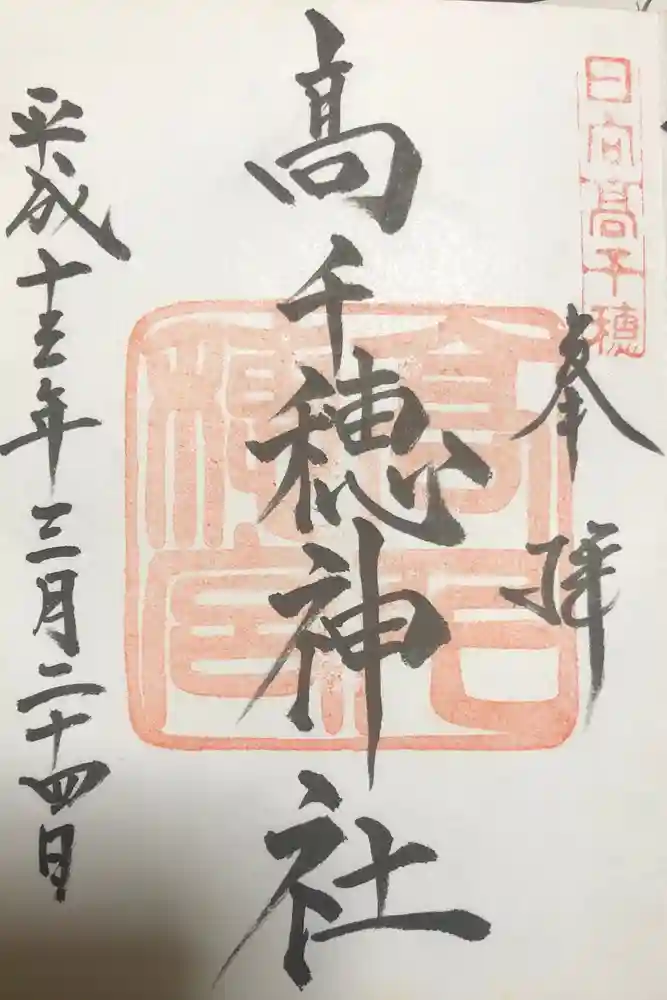 日向高千穂
奉拝
高千穂神社
平成十三年三月二十四日